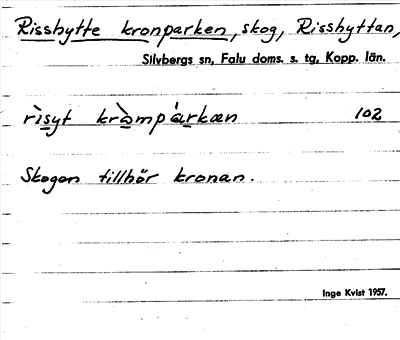 Rissbytte kronparken, skog, Rissbyttan,
Silvbergs sn, Falu doms. s. tg, Kopp. län.
rìsyt kràmpárkæn 102
Skogen tillhör kronan.
Inge Kvist 1957.